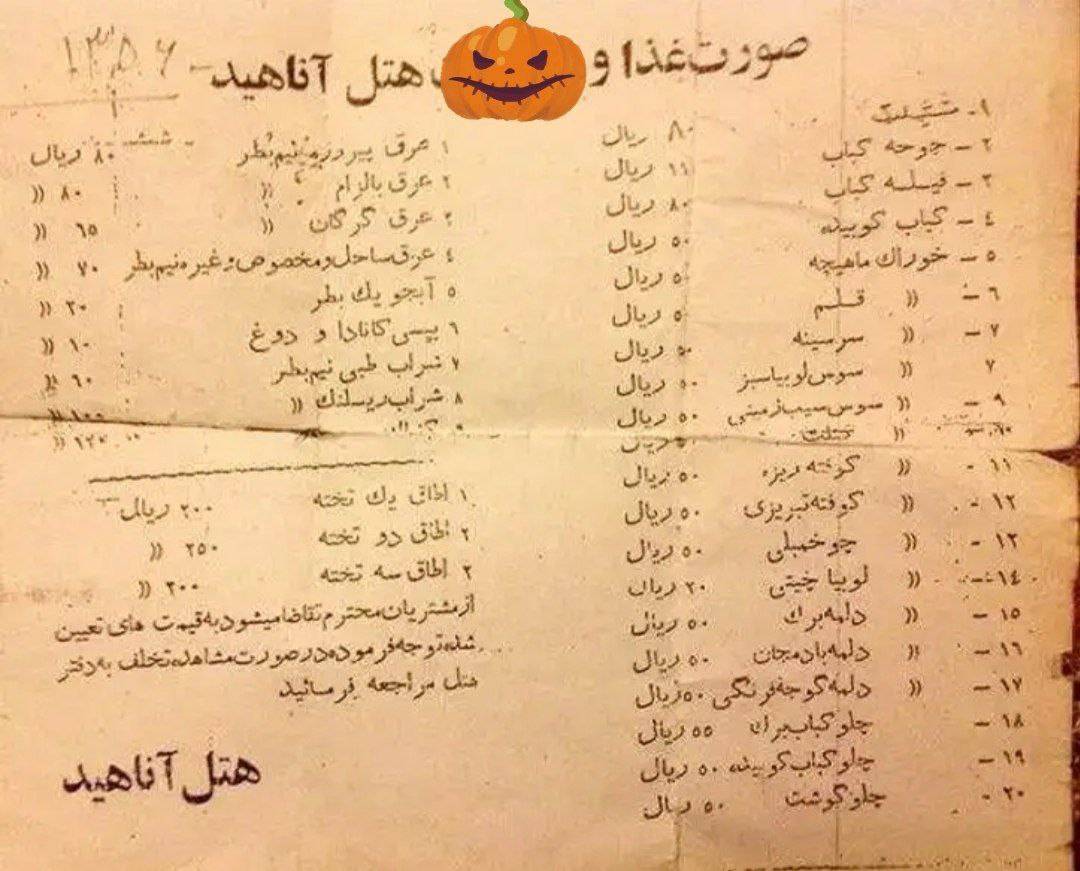 صورت غذا و هتل آناهید
۱۳۵۶
۱- شنیتسل ۸۰ ریال
۲- جوجه کباب ۱۱ ریال
۳- فیله کباب ۸۰ ریال
۴- کباب کوبیده ۵۰ ریال
۵- خوراک ماهیچه ۵۰ ریال
۶- « قلم ۵۰ ریال
۷- « سرسینه ۵۰ ریال
۷ « سوس لوبیا سبز ۵۰ ریال
۹- « سوس سیب زمینی ۵۰ ریال
۱۰- « کتلت ۵۰ ریال
۱۱- « کوفته ریزه ۵۰ ریال
۱۲- « کوفته تبریزی ۵۰ ریال
۱۳- « ۵۰ ریال
۱۴- « لوبیا چیتی ۲۰ ریال
۱۵- « دلمه برگ ۵۰ ریال
۱۶- « دلمه بادمجان ۵۰ ریال
۱۷- « دلمه گوجه فرنگی ۵۰ ریال
۱۸- چلو کباب برگ ۵۵ ریال
۱۹- چلو کباب کوبیده ۵۰ ریال
۲۰- چلو گوشت ۵۰ ریال
۱ عرق نیم بطر ۸۰ ریال
۲ عرق بالزام « ۸۰ «
۳ عرق گرگان « ۶۵ «
۴ عرق ساحل و مخصوص و غیره نیم بطر ۷۰ «
۵ آبجو یک بطر ۳۰ «
۶ پپسی کانادا و دوغ ۱۰ «
۷ شراب طبی نیم بطر ۶۰ «
۸ شراب ریسلنگ « ۱۰۰ «
۱ اطاق یک تخته ۲۰۰ ریال
۲ اطاق دو تخته ۲۵۰ «
۳ اطاق سه تخته ۳۰۰ «
از مشتریان محترم تقاضا میشود به قیمت های تعیین
شده توجه فرموده در صورت مشاهده تخلف به دفتر
هتل مراجعه فرمائید
هتل آناهید